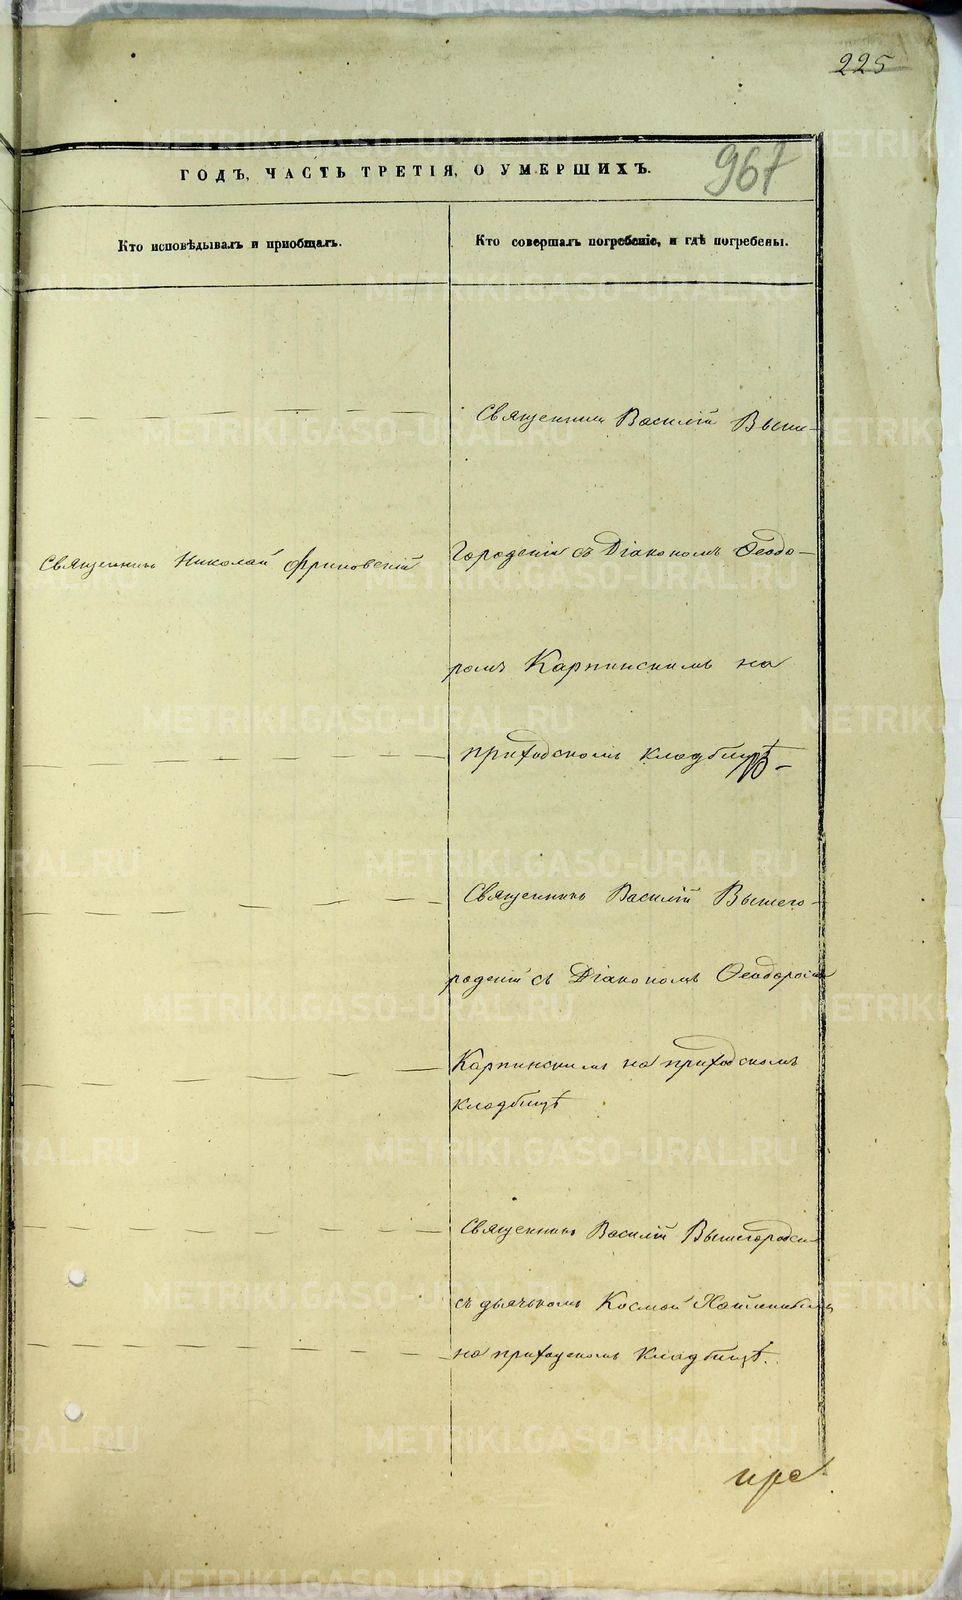 225
ГОДЪ, ЧАСТЬ ТРЕТІЯ, О УМЕРШИХЪ.
967
Кто исповѣдывалъ и приобщалъ.
Кто совершалъ погребеніе, и гдѣ погребены.
Священникъ Василій Выше-
Священникъ Николай
городскій съ Діакономъ Ѳеодо-
ромъ Карпинскимъ на
приходскомъ кладбищѣ
Священникъ Василій Вышего-
родскій съ Діакономъ Ѳеодоромъ
Карпинскимъ на приходскомъ
кладбищѣ
Священникъ Василій Вышегородскі
съ дьячкомъ Космой
на приходскомъ кладбищѣ.
METRIKI.GASO-URAL.RU